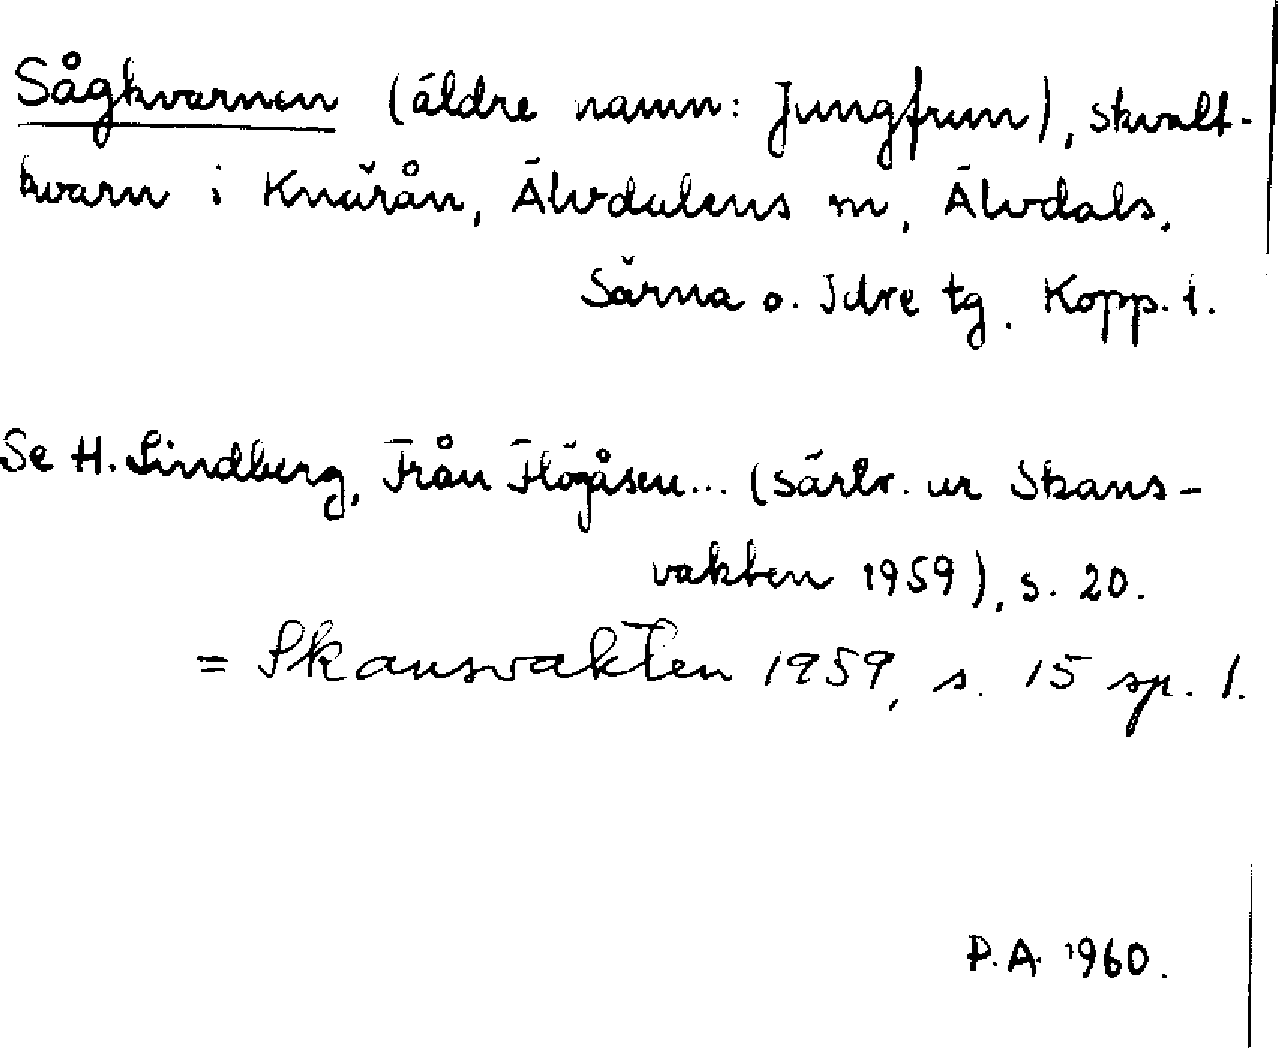 Sågkvarnen (äldre namn: Jungfrun), skvalt-
kvarn i Knärån, Älvdalens sn, Älvdals,
Särna o. Idre tg. Kopp. l.
Se H. Lindberg, Från Högåsen... (särtr. ur Skans-
vakten 1959), s. 20.
= Skansvakten 1959, s. 15 sp. 1.
P.A. 1960.